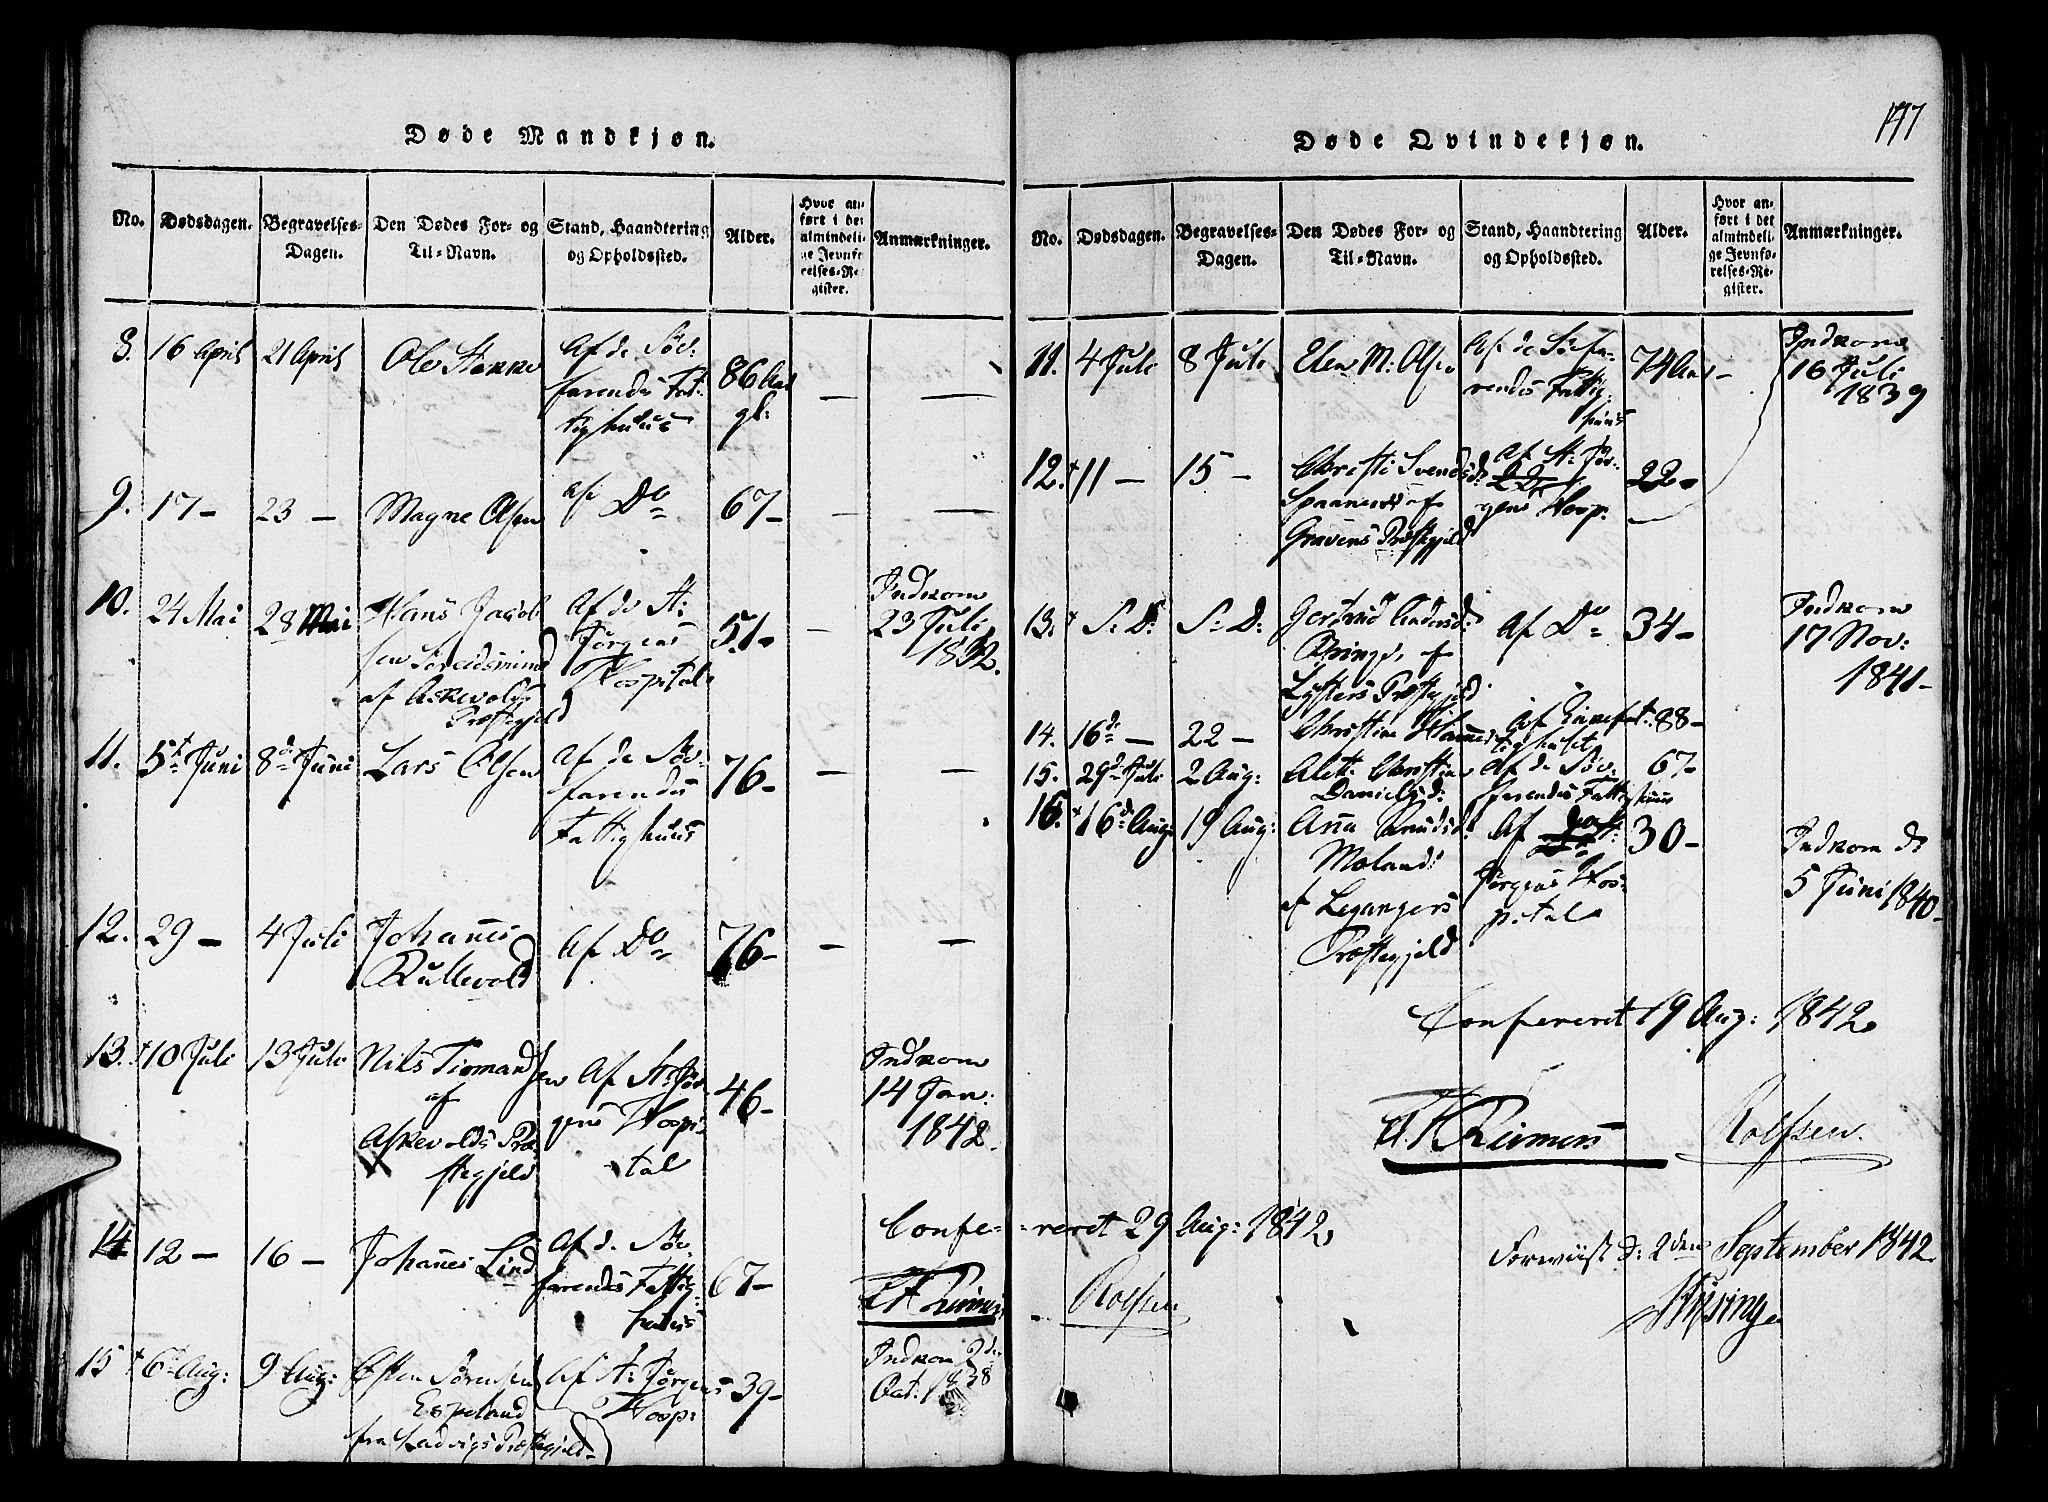 177
Døde Mandkjøn.
No. Dødsdagen. Begravelses-Dagen. Den Dødes For- og Til-Navn. Stand, Haandtering og Opholdssted. Alder. Hvor anført i det almindelige Jevnførelses-Register. Anmærkninger.
8. 16 April 21 April Ole
Af de Søfarendes Fattighuus
86 Aar gl:
— —
9. 17 — 23 — Magne Olsen af Do 67 —
— —
10. 24 Mai 28 Mai Hans Jacobsen
af Askevolds Præstegjeld
Af de St: Jørgens Hospital
51 — —
Indkom
23 Juli
1832.
11. 5t Juni 8d Juni Lars Olsen
Af de Søfarendes
Fattighuus
76 — — —
12. 29 — 4 Juli Johanes
Kullevold
Af Do 76 — — —
13. † 10 Juli 13 Juli Nils
af
Askevolds Præstegjeld
Af St: Jørgens Hospital
46 —
Indkom
14 Jan:
1842.
14 12 — 16 — Johanes Lind
Af de Søfarendes Fattighuus
67 —
15 † 6t Aug: 9 Aug: Østen Sørensen
Espeland
fra Ladvigs Præstegjeld
Af St: Jørgens
Hosp:
39 —
Indkom 2den
Oct: 1838
Confereret 29 Aug: 1842,
Rolfsen
Døde Qvindekjøn.
No. Dødsdagen. Begravelses-Dagen. Den Dødes For- og Til-Navn. Stand, Haandtering og Opholdssted. Alder. Hvor anført i det almindelige Jevnførelses-Register. Anmærkninger.
11. 4 Juli 8 Juli Elen M: Olsen
Af de Søfarendes Fattighuus
74 Aar —
Indkom
16 Juli
1839
12. † 11 — 15 — Christi Svendsd:
af
Gravens Præstegjeld
Af St: Jørgens Hosp.
22 —
13. † S: D: S: D: Gertrud Andersd:
af
Lysters Præstegjeld
Af Do 34 —
Indkom
17 Nov:
1841 —
14. 16de — 22 — Christine
88 —
15. 29d Juli 2 Aug: Alet: Christine
Danielsd:
Af de Søfarendes Fattighuus
67 —
16. † 16de Aug: 19 Aug: Ana Knudsd:
Mælands
af Leganger
Præstegjeld
Af St:
Jørgens Hospital
30 —
Indkom d:
5 Juni 1840 —
Confereret 19 Aug: 1842.
Rolfsen.
Foreviist d: 2den September 1842.